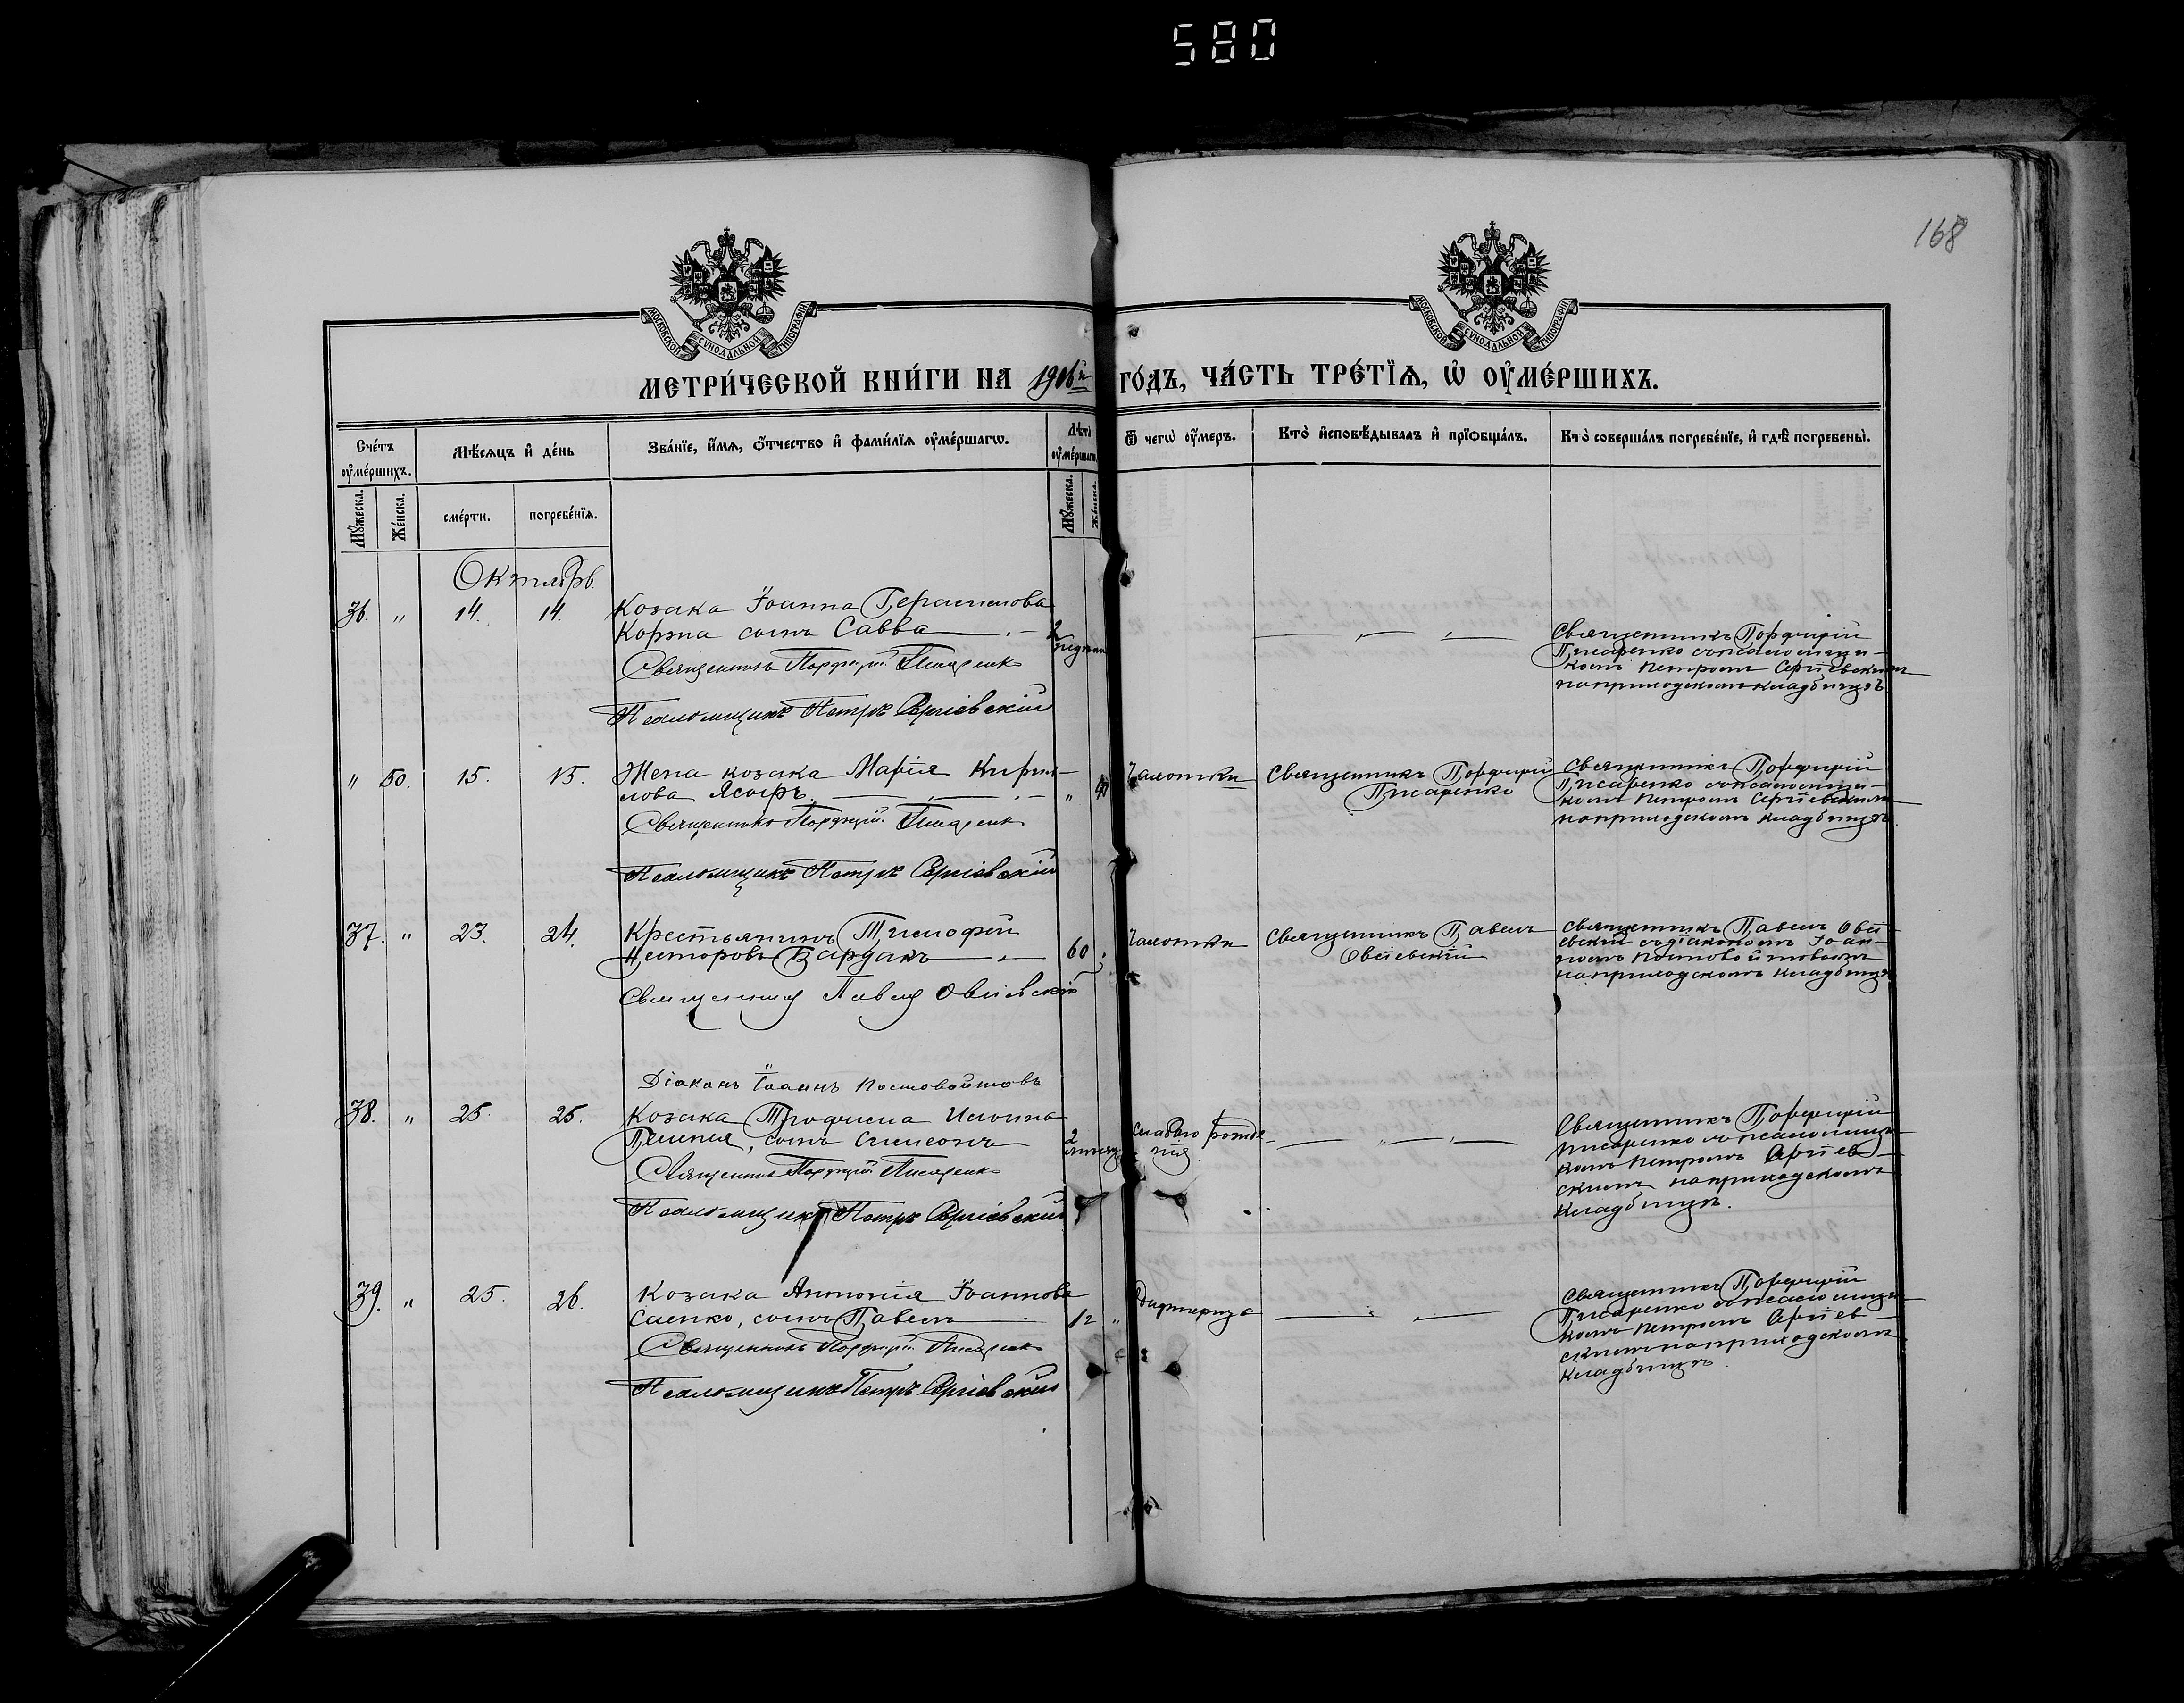 580
168
МОСКОВСКОЙ СѴНОДАЛЬНОЙ ТИПОГРАФІИ
МОСКОВСКОЙ СѴНОДАЛЬНОЙ ТИПОГРАФІИ
МЕТРИ́ЧЕСКОЙ КНИ́ГИ НА 1906й ГО́ДЪ, ЧА́СТЬ ТРЕ́ТЇѦ, Ѡ҆ ОУ҆МЕ́РШИХЪ.
Сче́тъ оу҆ме́ршихъ.
Мѣ́сяцъ и҆ де́нь
Зва́нїе, и҆́мя, ѻ҆́тчество и҆ фами́лїя оу҆ме́ршагѡ.
Лѣта̀ оу҆ме́ршагѡ.
Ѿ чегѡ̀ оу҆́меръ.
Кто̀ и҆сповѣ́дывалъ и҆ прїѻбща́лъ.
Кто̀ соверша́лъ погребе́нїе, и҆ гдѣ̀ погребены̀.
Мꙋ́жеска.
Же́нска.
сме́рти.
погребе́нїя.
Мꙋ́жеска.
Же́нска.
Октябрь.
36. " 14. 14. Козака Іоанна Герасимова
Коржа сынъ Савва 2
Священникъ Порфирій Писаренко
Псаломщикъ Петръ Сергіевскій
Священникъ Порфирій
Писаренко съ псаломщи-
комъ Петромъ Сергіевскимъ
на приходскомъ кладбищѣ
" 50. 15. 15. Жена козака Марія Кирил-
лова Ясыръ "
Священникъ Порфирій Писаренко
Псаломщикъ Петръ Сергіевскій
Чахотки
Священникъ Порфирій
Писаренко
Священникъ Порфирій
Писаренко съ псаломщи-
комъ Петромъ Сергіевскимъ
на приходскомъ кладбищѣ.
37. " 23. 24. Крестьянинъ Тимофій
Несторовъ Бардакъ 60
Священникъ Павелъ Овсіевскій
Діаконъ Іоаннъ Постовойтовъ
Чахотки
Священникъ Павелъ
Овсіевскій
Священникъ Павелъ Овсі-
евскій съ діакономъ Іоан-
номъ Постовойтовымъ
на приходскомъ кладбищѣ
38. " 25. 25. Козака Трофима
сынъ Симеонъ 2
Священникъ Порфирій Писаренко
Псаломщикъ Петръ Сергіевскій
слабаго рожде-
нія
Священникъ Порфирій
Писаренко съ псаломщи-
комъ Петромъ Сергіев-
скимъ на приходскомъ
кладбищѣ.
39. " 25. 26. Козака Антонія Іоаннова
Саенко, сынъ Павелъ 12 "
Священникъ Порфирій Писаренко
Псаломщикъ Петръ Сергіевскій
Дифтерита
Священникъ Порфирій
Писаренко съ псаломщи-
комъ Петромъ Сергіев-
скимъ на приходскомъ
кладбищѣ.